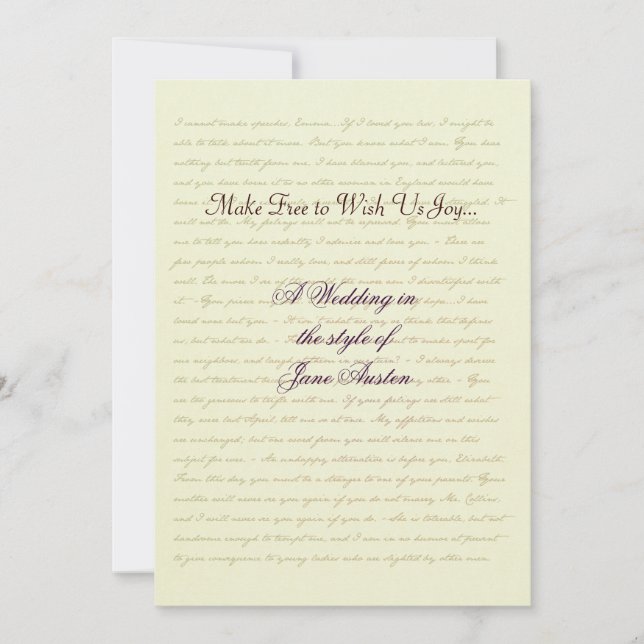 I cannot make speeches, Emma...If I loved you less, I might be
able to talk about it more. But you know what I am. You hear
nothing but truth from me, I have blamed you, and lectured you,
and you have borne it as no other woman in England would have
borne it.
Make Free to Wish Us Joy...
will not do. My feelings will not be repressed. You must allow
me to tell you how ardently I admire and love you. - There are
few people whom I really love, and still fewer of whom I think
well. The more I see of the world, the more am I dissatisfied with
it. - You pierce my
hope...I have
A Wedding in
loved none but you. - It isn't what we say or think that defines
us, but what we do. -
but to make sport for
the style of
our neighbors, and laugh at them in our turn? - I always deserve
the best treatment
any other. - You
Jane Austen
are too generous to trifle with me. If your feelings are still what
they were last April, tell me so at once. My affections and wishes
are unchanged; but one word from you will silence me on this
subject for ever. - An unhappy alternative is before you, Elizabeth.
From this day you must be a stranger to one of your parents. Your
mother will never see you again if you do not marry Mr. Collins,
and I will never see you again if you do. - She is tolerable, but not
handsome enough to tempt me, and I am in no humor at present
to give consequence to young ladies who are slighted by other men.